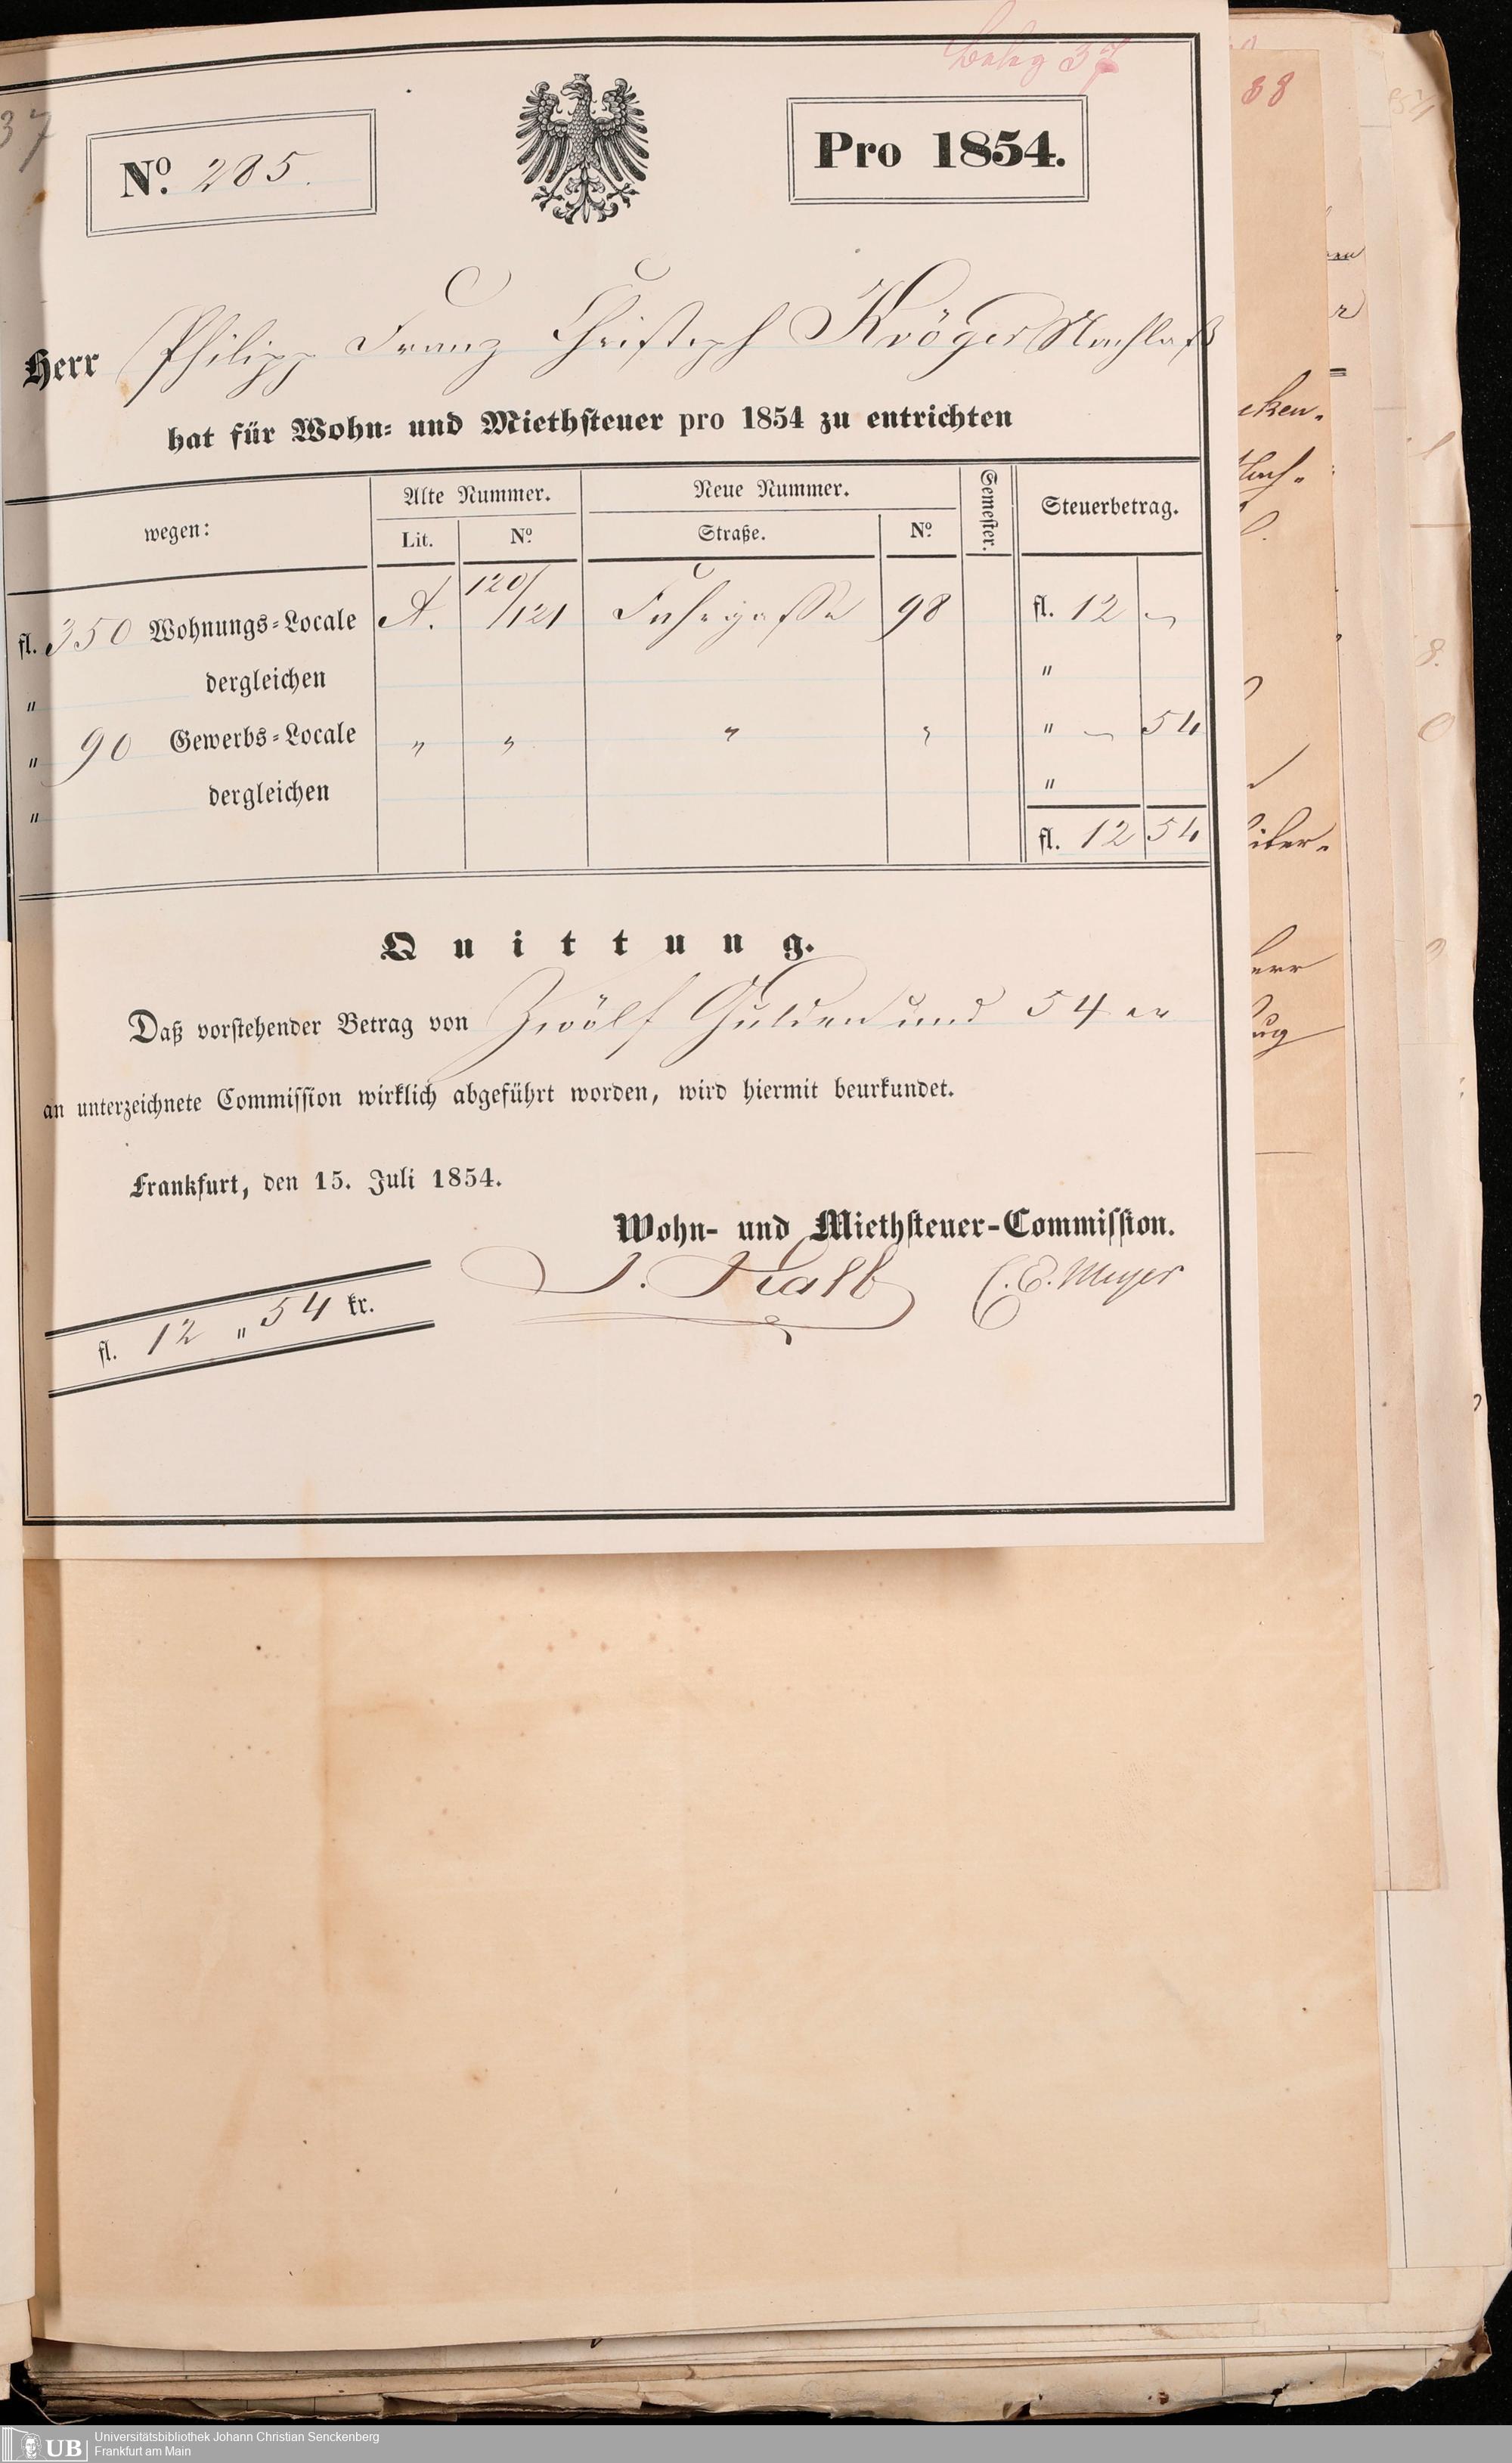 Beleg 37
37
88
Nº. 285.
Pro 1854.
Herr Philipp Franz Christoph Kröger Nachlaß
hat für Wohn= und Miethsteuer pro 1854 zu entrichten
wegen: Alte Nummer. Neue Nummer. Semester. Steuerbetrag.
Lit. Nº. Straße. Nº.
fl. 350 Wohnungs=Locale A. 120/121 Fahrgasse 98 fl. 12 —
" dergleichen "
" 90 Gewerbs=Locale " " " " " — 54
" dergleichen "
fl. 12 54
Quittung.
Daß vorstehender Betrag von Zwölf Gulden und 54 xr
an unterzeichnete Commission wirklich abgeführt worden, wird hiermit beurkundet.
Frankfurt, den 15. Juli 1854.
Wohn- und Miethsteuer-Commission.
J. Kalb C. E. Meyer
fl. 12 " 54 kr.
UB
Universitätsbibliothek Johann Christian Senckenberg
Frankfurt am Main